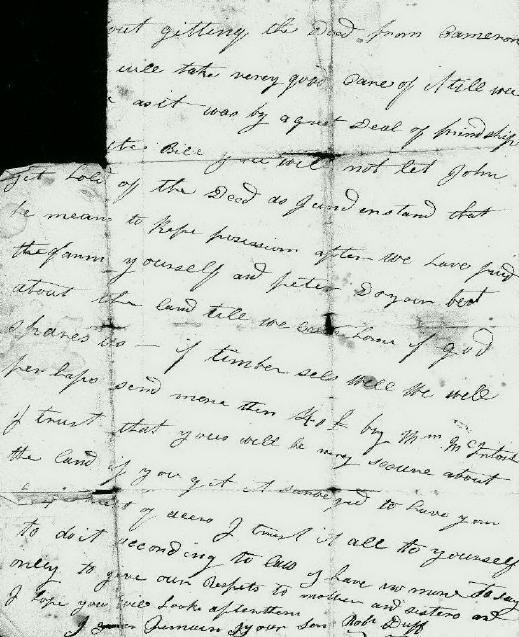 out gitting the Deed from Cameron
will take verey good Care of it till we
as it was by a grat Deal of friendship
Bill you will not let John
get hold of the Deed as I understand that
he means to kepe possession after we have paid
the farm yourself and peter Do your best
about the land till we come home if god
spares us — if timber sels well we will
perhaps send more then 40£ by Wm McIntosh
I trust that you will be very secure about
the land if you get it to have your
of deeds I trust it all to yourself
to do it according to law I have no more to say
only to give our Respets to mother and sisters and
I hope you will Looke after them
I Remain your son Robt Duff